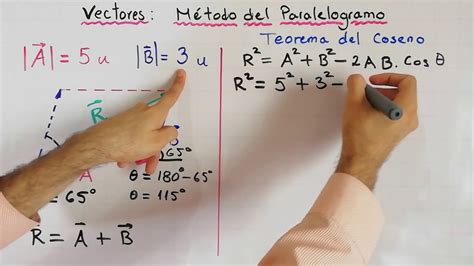 Vectores: Método del Paralelogramo
Teorema del Coseno
|A⃗| = 5 u
|B⃗| = 3 u
R² = A² + B² - 2AB. Cos θ
R² = 5² + 3² -
R⃗
65°
θ = 180° - 65°
θ = 115°
65°
R⃗ = A⃗ + B⃗